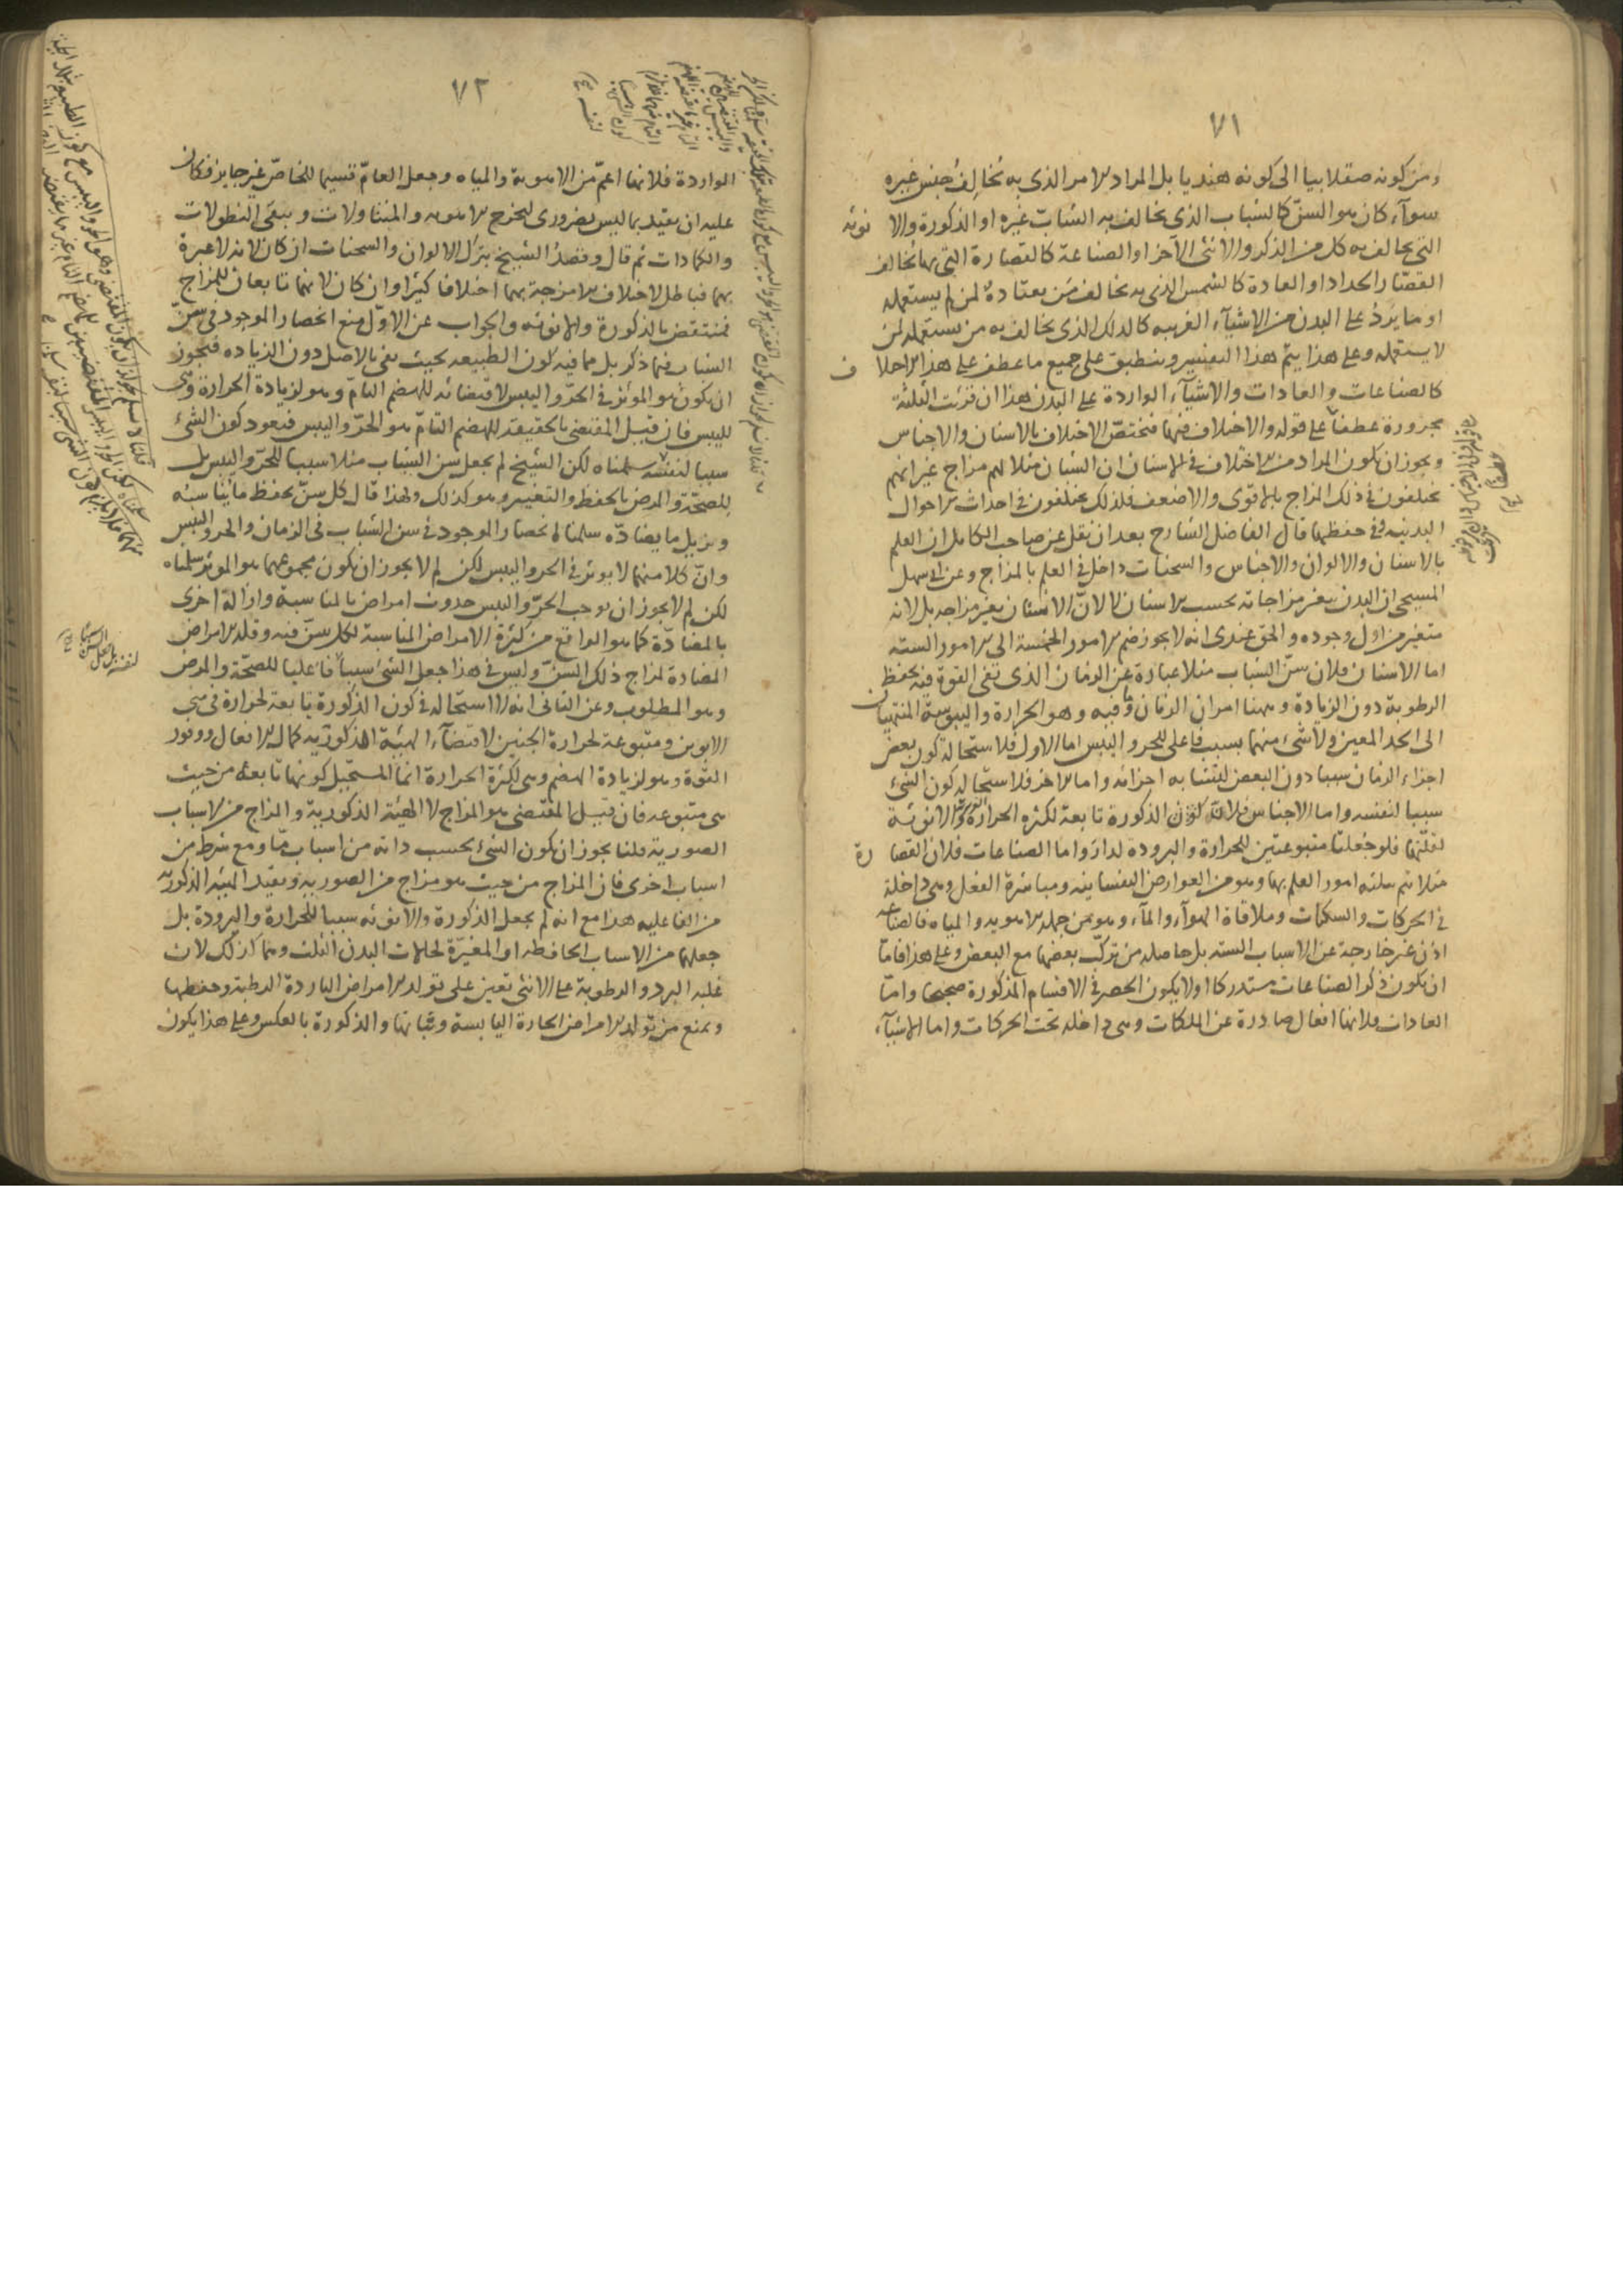 ٧١
ومن كونه صقلابيا الى كونه هنديا بل المراد الامر الذى به تخالف جنس غيره
سوآء كان هو السنّ كالشباب الذى يخالف به الشابّ غيره او الذكورة والانوثه
التى يخالف به كل من الذكر والانثى الآخر او الصناعة كالقصارة التى بها يخالف
القصّار الحداد او العادة كالشمس الذى به يخالف من يعتاده لمن لم يستعمله
او ما يرد على البدن من الاشيآء الغريبه كالدلك الذى يخالف به من يستعمله لمن
لا يستعمله وعلى هذا يتم هذا التفسير وينطبق على جميع ما عطف على هذا الاختلاف
كالصناعات والعادات والاشيآء الواردة على البدن هذا ان قرئت الثلثة
مجرورة عطفا على قوله والاختلاف فيها فتختصّ الاختلاف بالاسنان والاجناس
ويجوز ان يكون المراد من الاختلاف فى الاسنان ان الشبان مثلا لهم مزاج غير انهم
يختلفون فى ذلك المزاج بالاقوى والاضعف فلذلك يختلفون فى احداث الاحوال
البدنيه وفى حفظها قال الفاضل الشارح بعد ان نقل عن صاحب الكامل ان العلم
بالاسنان والالوان والاجناس والسحنات داخل فى العلم بالمزاج وعن ابى سهل
المسيحى ان البدن يتغير مزاجاته بحسب الاسنان لا لانّ الاسنان يغير مزاجه بل لانه
متغير من اول وجوده والحق عندى انه لا يجوز ضم الامور الخمسة الى الامور السته
اما الاسنان فلان سنّ الشباب مثلا عبارة عن الزمان الذى تفى القوة فيه بحفظ
الرطوبة دون الزيادة وههنا امران الزمان وما فيه وهو الحرارة واليبوسة المنتهيان
الى الحد المعين ولا شىء منهما بسبب فاعلى للحر واليبس اما الاول فلاستحالة كون بعض
اجزاء الزمان سببا دون البعض لتشابه اجزائه واما الاخر فلاستحاله كون الشىء
سببا لنفسه واما الاجناس فلان كون الذكورة تابعة لكثره الحرارة والانوثة
لقلّتها فلو جعلتا متبوعتين للحرارة والبروده لدار واما الصناعات فلان القصارة
مثلا يتم بثلثه امور العلم بها وهو من العوارض النفسانيه ومباشرة الفعل وهى داخلة
فى الحركات والسكنات وملاقاة الهوآء والمآء وهو من جمله الاهويه والمياه فالصناعه
اذن غير خارجة عن الاسباب السته بل حاصله من تركّب بعضها مع البعض وعلى هذا فاما
ان يكون ذكر الصناعات مستدركا او لا يكون الحصر فى الاقسام المذكورة صحيحا وامّا
العادات فلانها افعال صادرة عن الملكات وهى داخله تحت الحركات واما الاشيآء
٧٢
الواردة فلانها اعمّ من الاهوية والمياه وجعل العامّ قسيما للخاصّ غير جايز فكان
عليه ان يقيد بما ليس بضرورى ليخرج الاهويه والمتناولات ويبقى النطولات
والكمادات ثم قال وقصدُ الشيخ بترك الالوان والسحنات ان كان لانه لا عبرة
بهما فباطل لاختلاف الامزجة بهما اختلافا كثيرا وان كان لانهما تابعان للمزاج
فمنتقض بالذكورة والانوثه والجواب عن الاوّل منع انحصار الموجود فى سنّ
الشباب فيما ذكر بل مما فيه كون الطبيعه بحيث تفى بالاصل دون الزياده فيجوز
ان يكون هو المؤثر فى الحرّ واليبس لاقتضائه للهضم التامّ وهو لزيادة الحرارة وهى
لليبس فان قيل المقتضى بالحقيقه للهضم التامّ هو الحرّ واليبس فيعود كون الشىء
سببا لنفسه سلمناه لكن الشيخ لم يجعل سن الشباب مثلا سببا للحرّ واليبس بل
للصحّة والمرض بالحفظ والتغيير وهو كذلك ولهذا قال كل سنّ يحفظ ما يناسبه
ويزيل ما يضادّه سلمنا انحصار الموجود فى سن الشباب فى الزمان والحر واليبس
وانّ كلا منهما لا يوثر فى الحر واليبس لكن لم لا يجوز ان يكون مجموعهما هو الموثر سلمناه
لكن لم لا يجوز ان يوجب الحرّ واليبس حدوث امراض بالمناسبة وازالة اخرى
بالمضادّة كما هو الواقع من كثرة الامراض المناسبة لكل سنّ فيه وقله الامراض
المضادة لمزاج ذلك السنّ وليس فى هذا جعل الشى سببا فاعليا للصحّة والمرض
وهو المطلوب وعن الثانى انه لا استحاله فى كون الذكورة تابعة لحرارة فى منى
الابوين ومتبوعة لحرارة الجنين لاقتضآء الهيئة الذكوريه كمال الافعال ووفور
القوة وهو لزيادة الهضم وهى لكثرة الحرارة انما المستحيل كونها تابعه من حيث
هى متبوعه فان قيل المقتضى هو المزاج لا الهيئة الذكورية والمزاج من الاسباب
الصورية قلنا يجوز ان يكون الشىء بحسب ذاته من اسباب مّا ومع شرط من
اسباب اخرى فان المزاج من حيث هو مزاج من الصوريه وبقيد الهيئه الذكوريه
من الفاعليه هذا مع انه لم يجعل الذكورة والانوثه سببا للحرارة والبرودة بل
جعلهما من الاسباب الحافظه او المغيرة لحالات البدن الثلث وهما كذلك لان
غلبه البرد والرطوبة على الانثى تعين على تولد الامراض الباردة الرطبة وحفظها
ويمنع من تولد الامراض الحارة اليابسة وثباتها والذكورة بالعكس وعلى هذا يكون